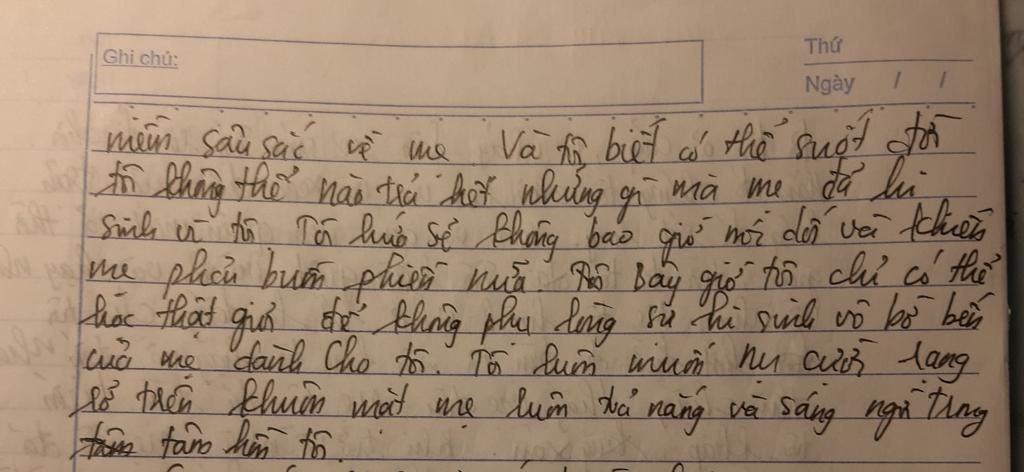 Ghi chú:
Thứ
Ngày / /
niềm sâu sắc về mẹ. Và tôi biết có thể suốt đời
tôi không thể nào trả hết những gì mà mẹ đã hi
sinh vì tôi. Tôi hứa sẽ không bao giờ nói dối và khiến
mẹ phải buồn phiền nữa. Bây giờ tôi chỉ có thể
học thật giỏi để không phụ lòng sự hi sinh vô bờ bến
của mẹ dành cho tôi. Tôi luôn muốn nụ cười rạng
rỡ trên khuôn mặt mẹ luôn toả nắng và sáng ngời trong
tâm hồn tôi.